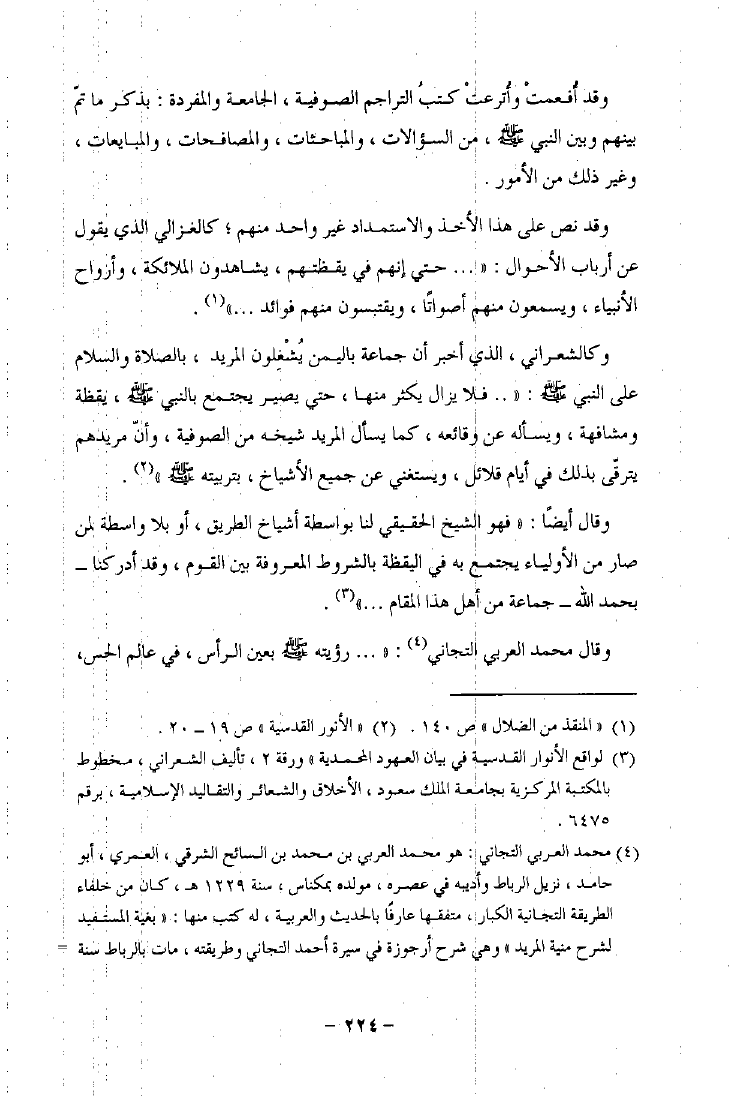 وقد أُفعمتْ وأُترعتْ كتبُ التراجم الصوفية ، الجامعة والمفردة : بذكر ما تمّ
بينهم وبين النبي ﷺ ، من السؤالات ، والمباحثات ، والمصافحات ، والمبايعات ،
وغير ذلك من الأمور .
وقد نص على هذا الأخذ والاستمداد غير واحد منهم ؛ كالغزالي الذي يقول
عن أرباب الأحوال : « ... حتي إنهم في يقظتهم ، يشاهدون الملائكة ، وأرواح
الأنبياء ، ويسمعون منهم أصواتًا ، ويقتبسون منهم فوائد ...»(١) .
وكالشعراني ، الذي أخبر أن جماعة باليمن يُشْغلون المريد ، بالصلاة والسلام
على النبي ﷺ : « .. فلا يزال يكثر منها ، حتي يصير يجتمع بالنبي ﷺ ، يقظة
ومشافهة ، ويسأله عن وقائعه ، كما يسأل المريد شيخه من الصوفية ، وأنّ مريدهم
يترقّى بذلك في أيام قلائل ، ويستغني عن جميع الأشياخ ، بتربيته ﷺ »(٢) .
وقال أيضًا : « فهو الشيخ الحقيقي لنا بواسطة أشياخ الطريق ، أو بلا واسطة لمن
صار من الأولياء يجتمع به في اليقظة بالشروط المعروفة بين القوم ، وقد أدركنا ـ
بحمد الله ـ جماعة من أهل هذا المقام ...»(٣) .
وقال محمد العربي التجاني(٤) : « ... رؤيته ﷺ بعين الرأس ، في عالم الحس،
(١) « المنقذ من الضلال » ص ١٤٠ . (٢) « الأنور القدسية » ص ١٩ ـ ٢٠ .
(٣) لواقع الأنوار القدسية في بيان العهود المحمدية » ورقة ٢ ، تأليف الشعراني ، مخطوط
بالمكتبة المركزية بجامعة الملك سعود ، الأخلاق والشعائر والتقاليد الإسلامية ، برقم
٦٤٧٥ .
(٤) محمد العربي التجاني : هو محمد العربي بن محمد بن السائح الشرقي ، العمري ، أبو
حامد ، نزيل الرباط وأديبه في عصره ، مولده بمكناس ، سنة ١٢٢٩ هـ ، كان من خلفاء
الطريقة التجانية الكبار ، متفقها عارفًا بالحديث والعربية ، له كتب منها : « بغية المستفيد
لشرح منية المريد » وهي شرح أرجوزة في سيرة أحمد التجاني وطريقته ، مات بالرباط سنة =
- ٢٢٤ -